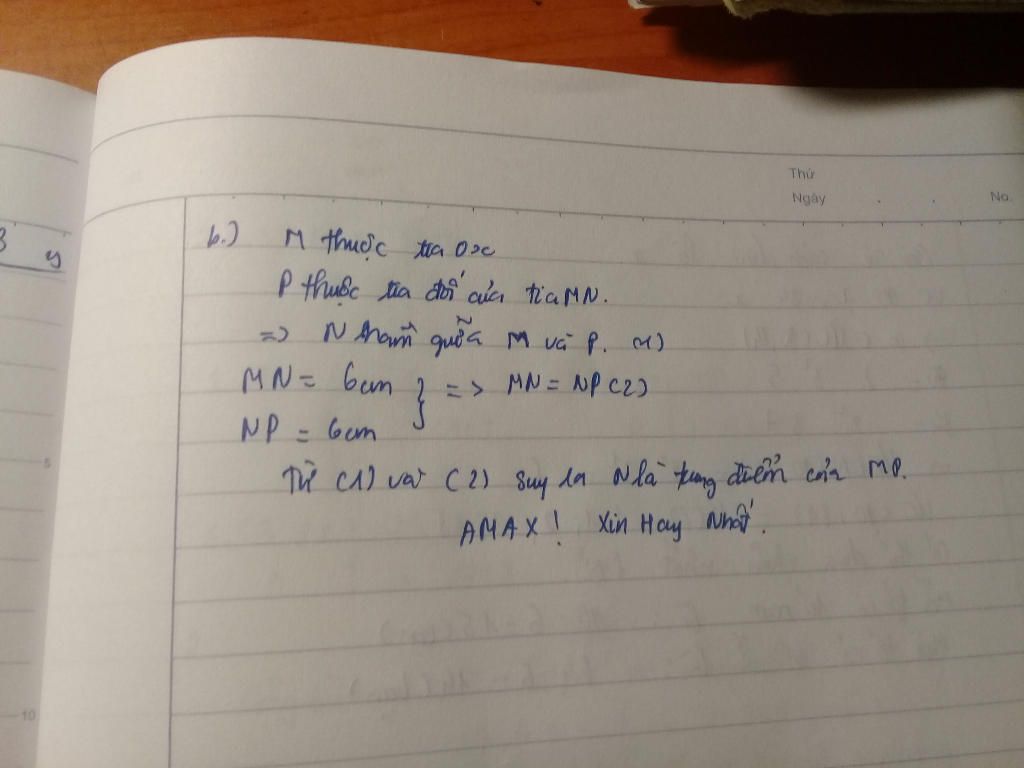 Thứ
Ngày . . No.
3 y
b.) M thuộc tia Ox
P thuộc tia đối của tia MN.
=> N nằm giữa M và P. (1)
MN = 6cm } => MN = NP (2)
NP = 6cm
Từ (1) và (2) suy ra N là trung điểm của MP.
AMAX! Xin Hay Nhất.
5
10